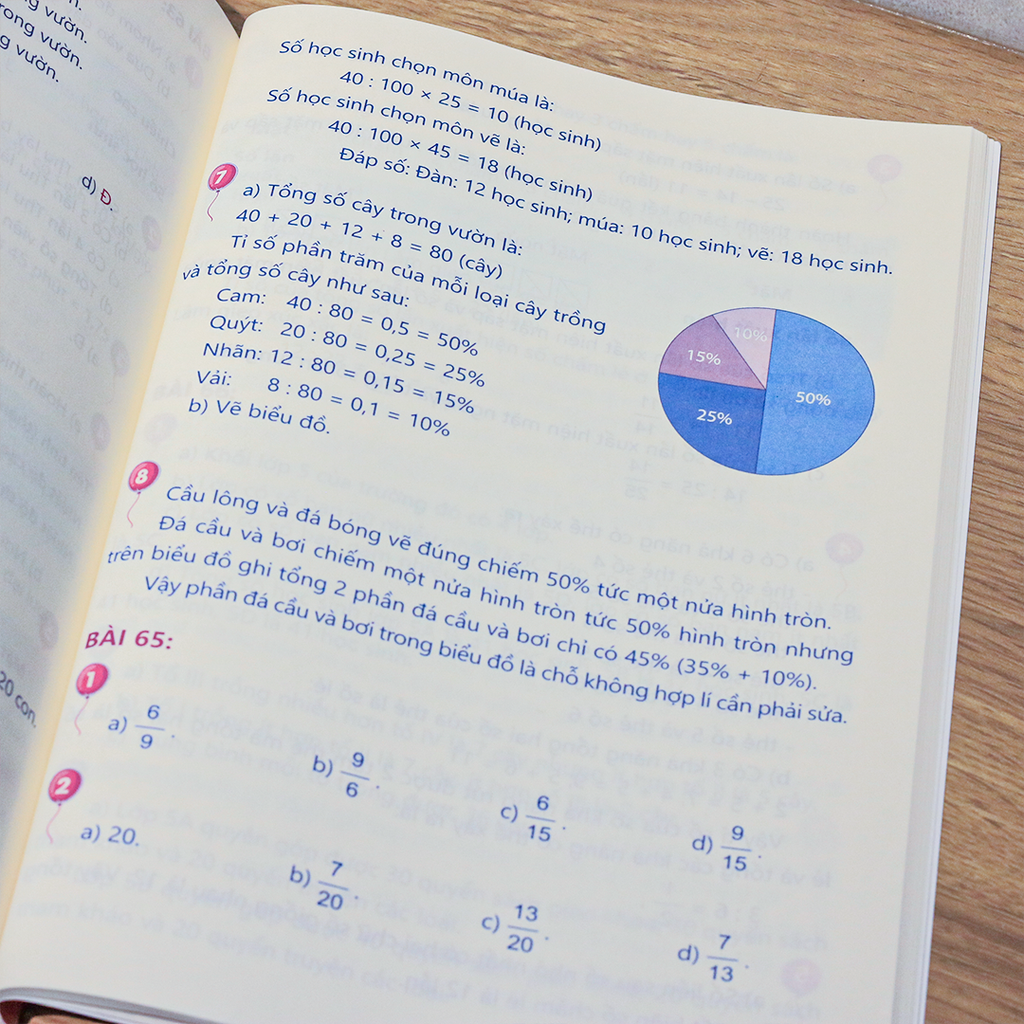 vườn.
rong vườn.
g vườn.
d) Đ.
20 con.
Số học sinh chọn môn múa là:
40 : 100 × 25 = 10 (học sinh)
Số học sinh chọn môn vẽ là:
40 : 100 × 45 = 18 (học sinh)
Đáp số: Đàn: 12 học sinh; múa: 10 học sinh; vẽ: 18 học sinh.
7
a) Tổng số cây trong vườn là:
40 + 20 + 12 + 8 = 80 (cây)
Tỉ số phần trăm của mỗi loại cây trồng
và tổng số cây như sau:
Cam: 40 : 80 = 0,5 = 50%
Quýt: 20 : 80 = 0,25 = 25%
Nhãn: 12 : 80 = 0,15 = 15%
Vải: 8 : 80 = 0,1 = 10%
b) Vẽ biểu đồ.
10%
15%
50%
25%
8
Cầu lông và đá bóng vẽ đúng chiếm 50% tức một nửa hình tròn.
Đá cầu và bơi chiếm một nửa hình tròn tức 50% hình tròn nhưng
trên biểu đồ ghi tổng 2 phần đá cầu và bơi chỉ có 45% (35% + 10%).
Vậy phần đá cầu và bơi trong biểu đồ là chỗ không hợp lí cần phải sửa.
BÀI 65:
1
a) 6/9 . b) 9/6 . c) 6/15 . d) 9/15 .
2
a) 20. b) 7/20 . c) 13/20 . d) 7/13 .